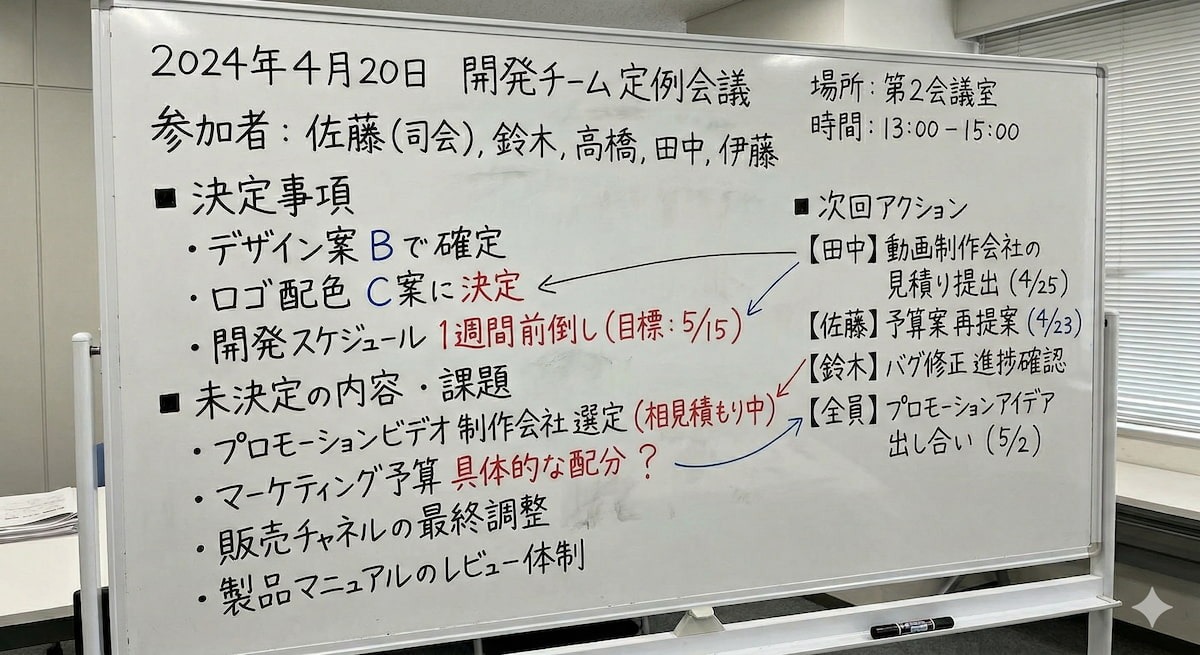 2024年4月20日 開発チーム定例会議
参加者：佐藤(司会), 鈴木, 高橋, 田中, 伊藤
場所：第2会議室
時間：13:00－15:00
■ 決定事項
・デザイン案 B で確定
・ロゴ配色 C案に決定
・開発スケジュール 1週間前倒し(目標：5/15)
■ 未決定の内容・課題
・プロモーションビデオ制作会社選定(相見積もり中)
・マーケティング予算 具体的な配分？
・販売チャネルの最終調整
・製品マニュアルのレビュー体制
■ 次回アクション
【田中】動画制作会社の
見積り提出(4/25)
【佐藤】予算案再提案(4/23)
【鈴木】バグ修正進捗確認
【全員】プロモーションアイデア
出し合い(5/2)